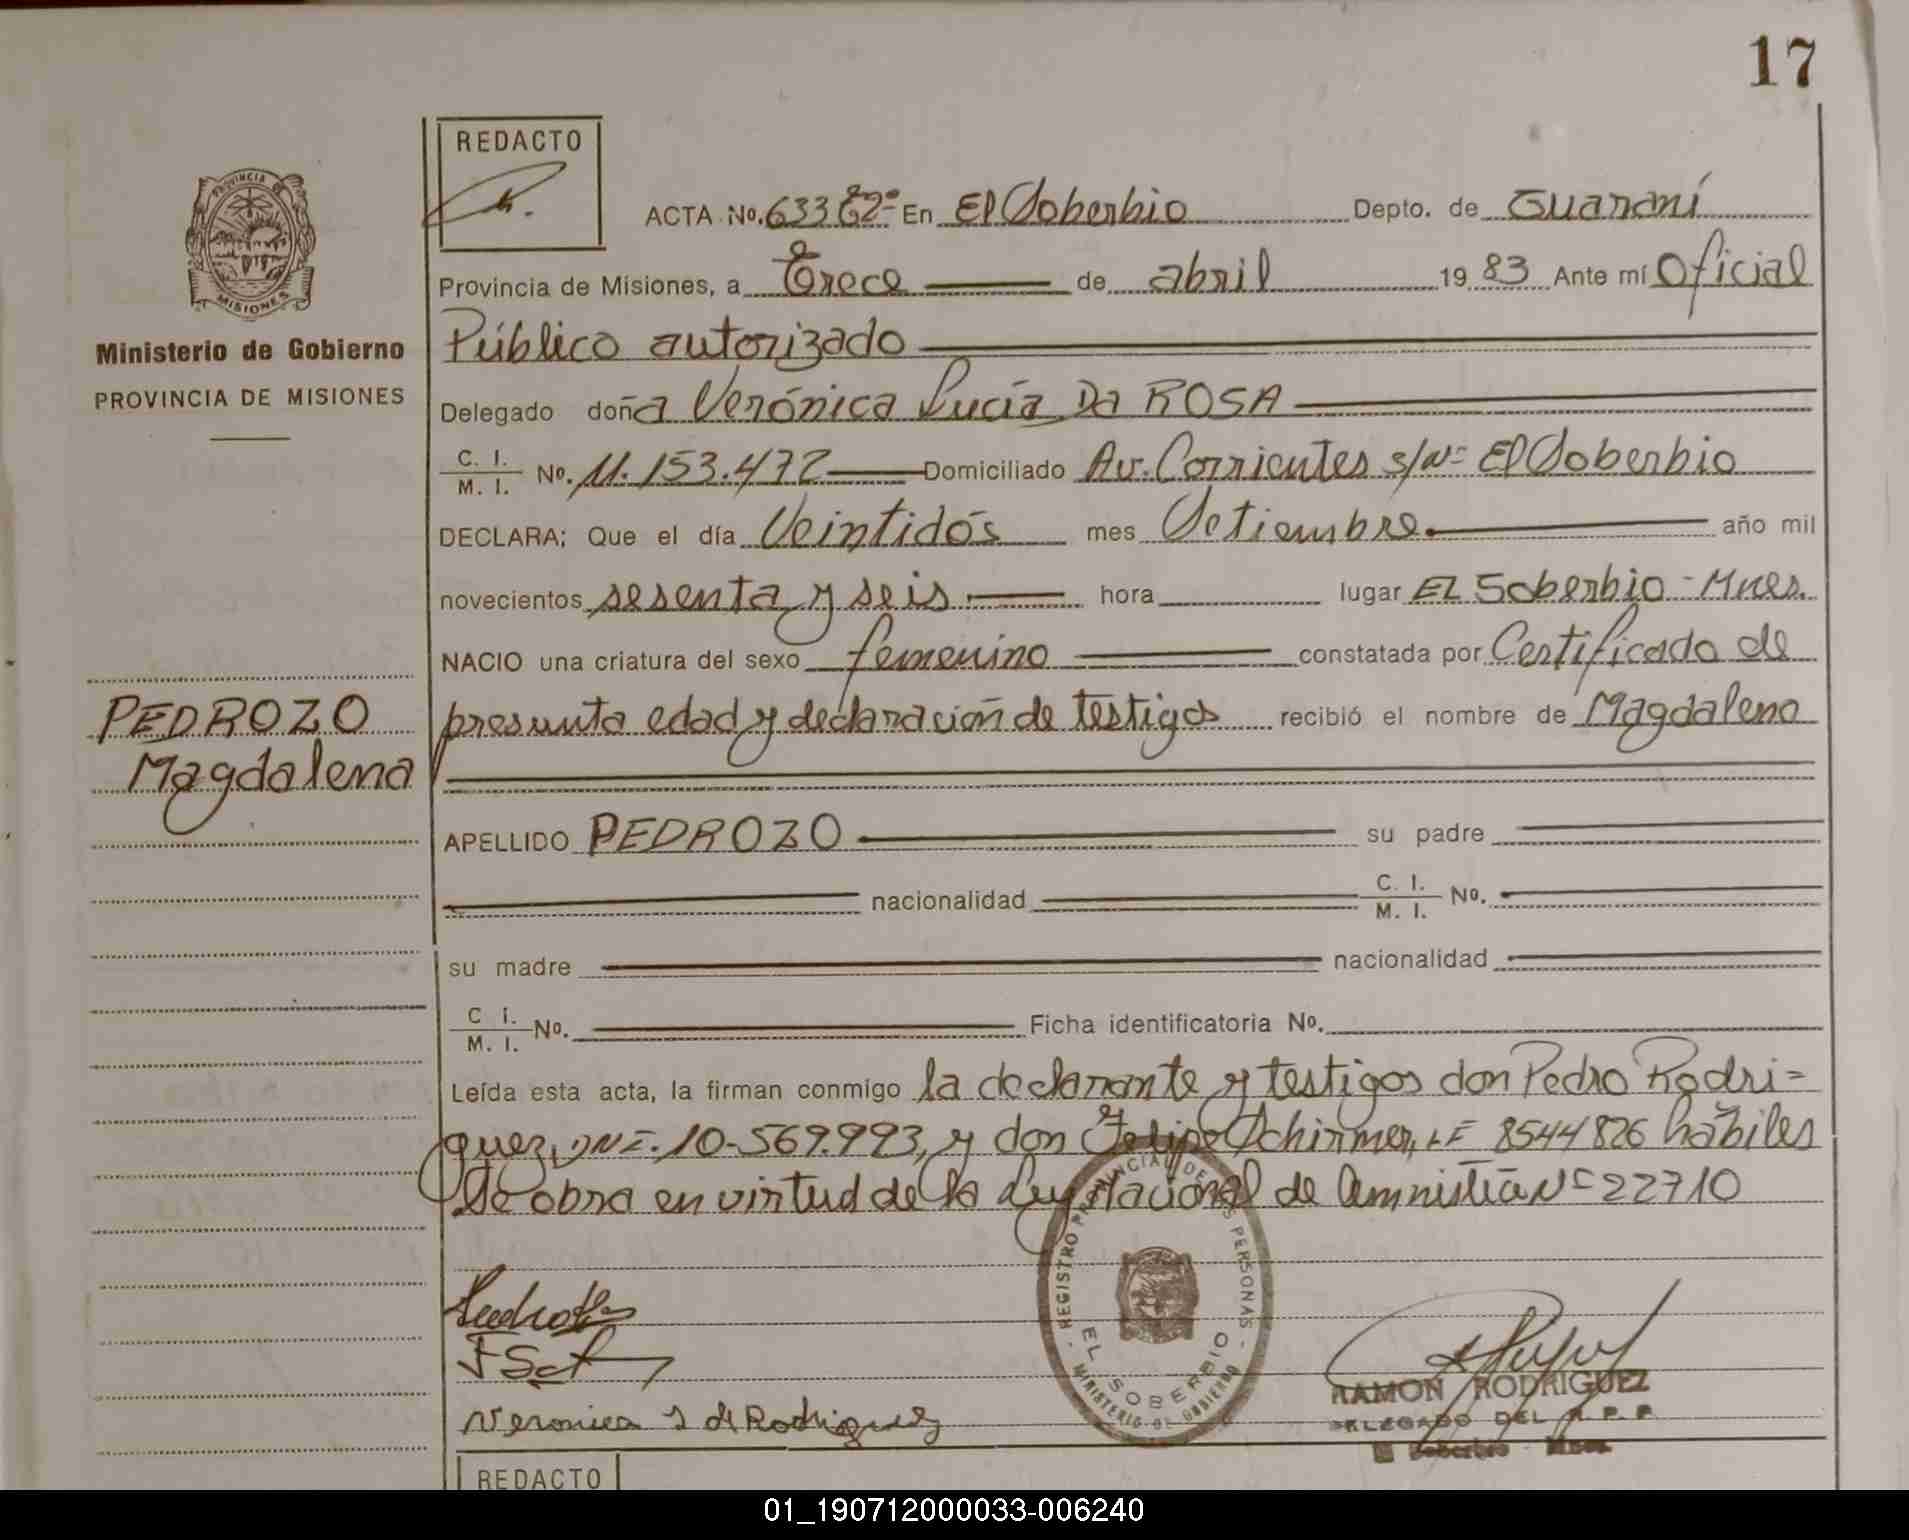 17
REDACTO
PROVINCIA DE
MISIONES
ACTA No. 633 En El Soberbio Depto. de Guaraní
Provincia de Misiones, a Trece de abril 1983 Ante mí Oficial
Ministerio de Gobierno
PROVINCIA DE MISIONES
Público autorizado
Delegado doña Verónica Lucía Da ROSA
C. I.
M. I. No. 11.153.472 Domiciliado Av. Corrientes s/Nº El Soberbio
DECLARA; Que el día Veintidós mes Setiembre año mil
novecientos sesenta y seis hora lugar EL Soberbio - Mnes.
NACIO una criatura del sexo femenino constatada por Certificado de
PEDROZO
Magdalena
presunta edad y declaración de testigos recibió el nombre de Magdalena
APELLIDO PEDROZO su padre
nacionalidad C. I.
M. I. No.
su madre nacionalidad
C I.
M. I. No. Ficha identificatoria No.
Leída esta acta, la firman conmigo la declarante y testigos don Pedro Rodri=
guez, DNI. 10-569.993, y don Felipe Schirmer, LE 8544826 hábiles
Se obra en virtud de la Ley Nacional de Amnistía Nº 22710
REGISTRO PROVINCIAL DE LAS PERSONAS
EL SOBERBIO
MINISTERIO DE GOBIERNO
Veronica L de Rodriguez
RAMON RODRIGUEZ
DELEGADO DEL R. P. P.
El Soberbio - Mnes.
REDACTO
01_190712000033-006240